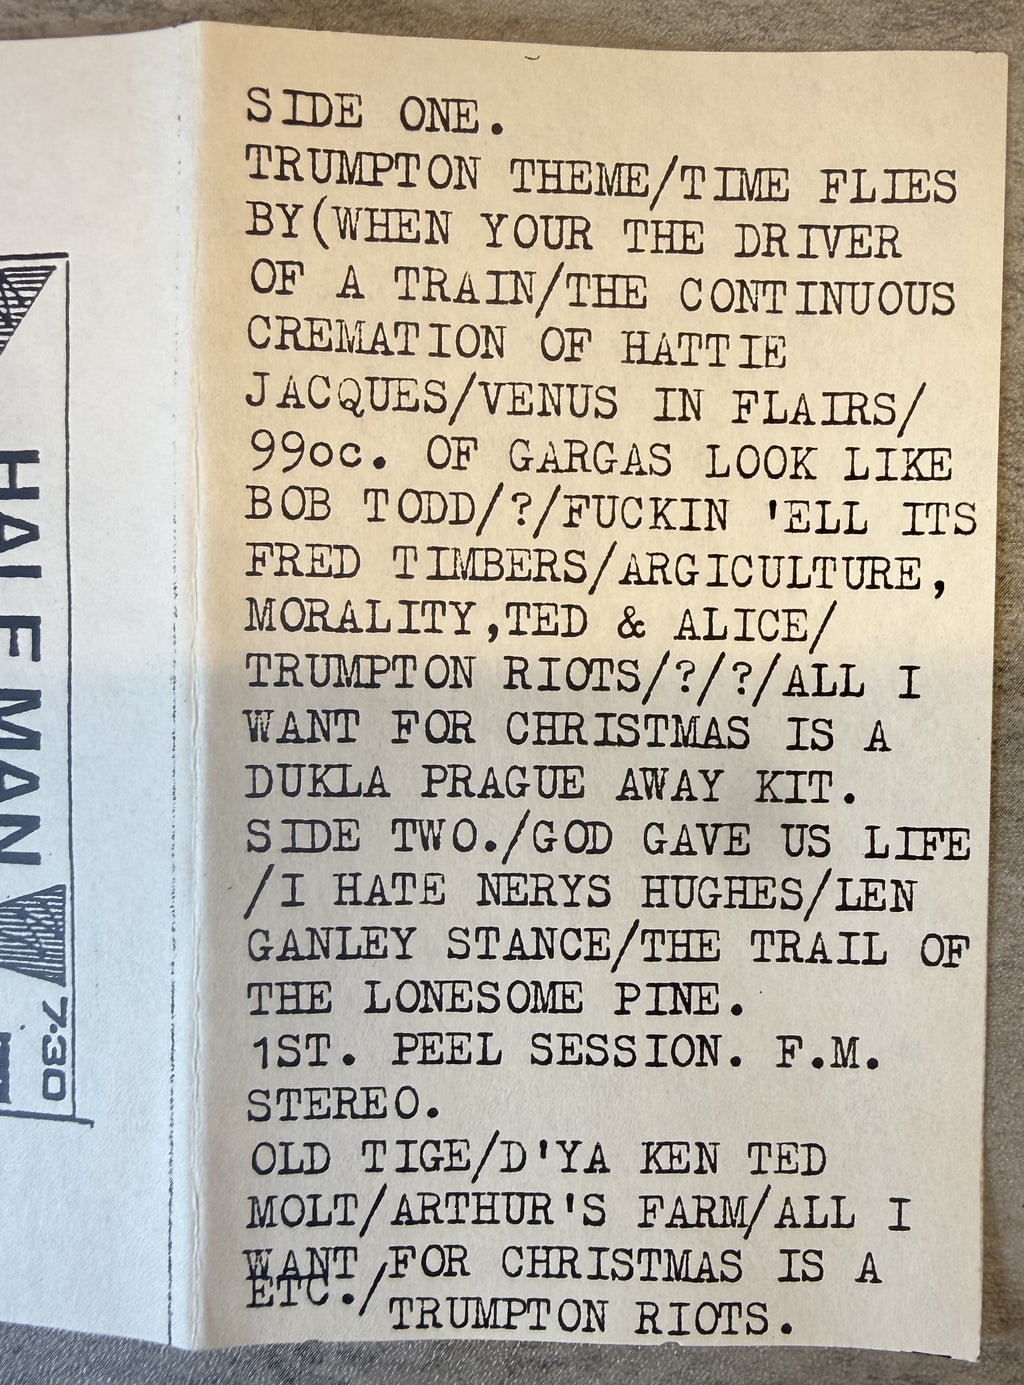 SIDE ONE.
TRUMPTON THEME/TIME FLIES
BY(WHEN YOUR THE DRIVER
OF A TRAIN/THE CONTINUOUS
CREMATION OF HATTIE
JACQUES/VENUS IN FLAIRS/
99oc. OF GARGAS LOOK LIKE
BOB TODD/?/FUCKIN 'ELL ITS
FRED TIMBERS/ARGICULTURE,
MORALITY,TED & ALICE/
TRUMPTON RIOTS/?/?/ALL I
WANT FOR CHRISTMAS IS A
DUKLA PRAGUE AWAY KIT.
SIDE TWO./GOD GAVE US LIFE
/I HATE NERYS HUGHES/LEN
GANLEY STANCE/THE TRAIL OF
THE LONESOME PINE.
1ST. PEEL SESSION. F.M.
STEREO.
OLD TIGE/D'YA KEN TED
MOLT/ARTHUR'S FARM/ALL I
WANT FOR CHRISTMAS IS A
ETC./TRUMPTON RIOTS.
HALF MAN
7.30